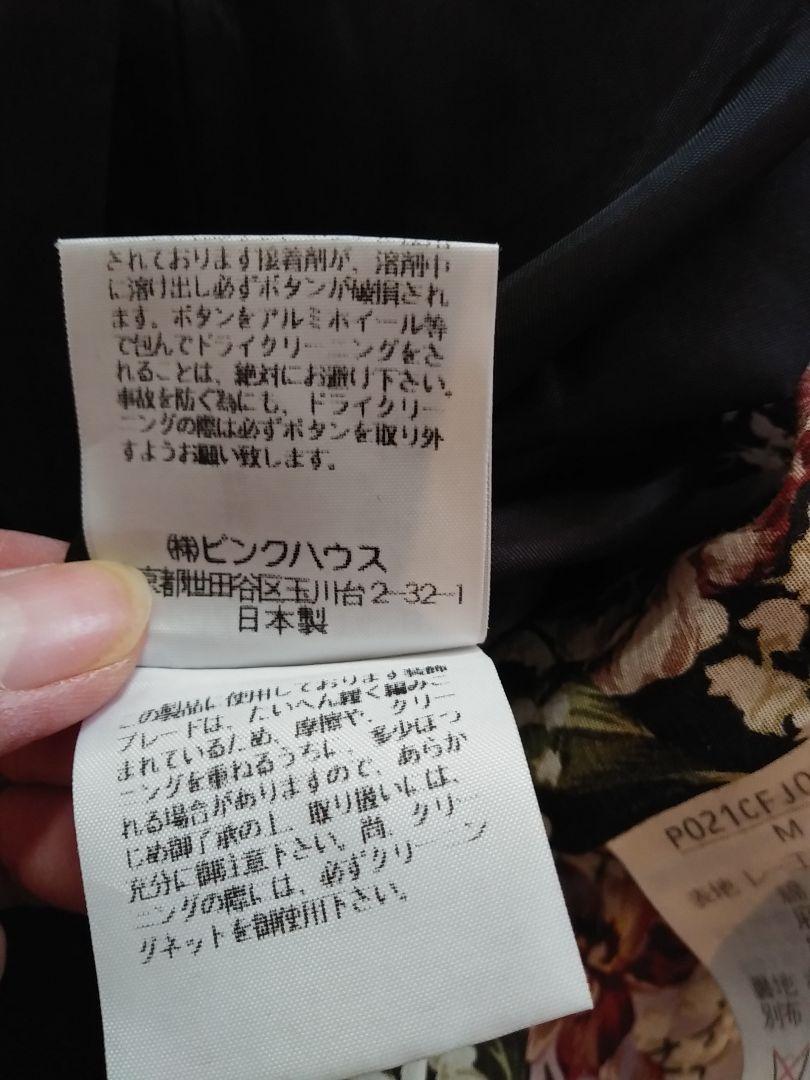 されております接着剤が、溶剤中
に溶け出し必ずボタンが破損され
ます。ボタンをアルミホイール等
で包んでドライクリーニングをさ
れることは、絶対にお避け下さい。
事故を防ぐ為にも、ドライクリー
ニングの際は必ずボタンを取り外
すようお願い致します。
㈱ピンクハウス
京都世田谷区玉川台2-32-1
日本製
この製品に使用しております装飾
ブレードは、たいへん緩く編みこ
まれているため、摩擦や、クリー
ニングを重ねるうちに、多少ほつ
れる場合がありますので、あらか
じめ御了承の上、取り扱いには、
充分に御注意下さい。尚、クリー
ニングの際には、必ずクリーニン
グネットを御使用下さい。
P021CFJ0
M
表地 レーヨ
裏地
別布